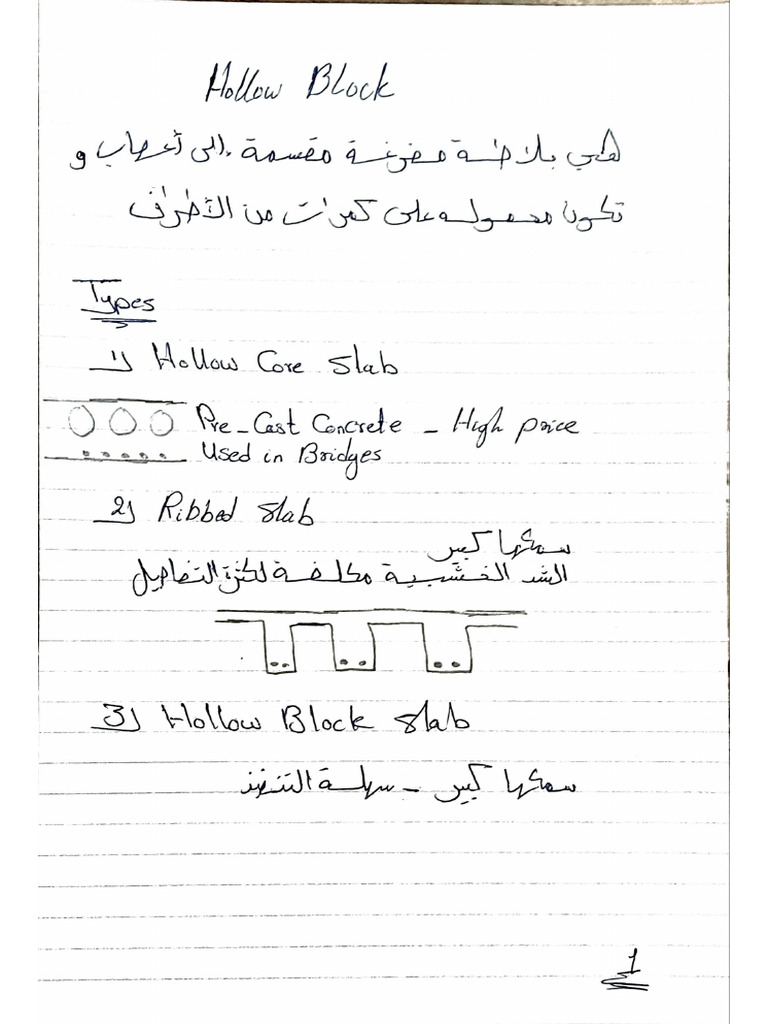 Hollow Block
هي بلاطة مفرغة مقسمة إلى أعصاب و
تكون محموله على كمرات من الأطراف
Types
1) Hollow Core Slab
Pre-Cast Concrete - High price
Used in Bridges
2) Ribbed Slab
سمكها كبير
الشد الخشبية مكلفة لكثرة التفاصيل
3) Hollow Block Slab
سمكها كبير - سهلة التنفيذ
1